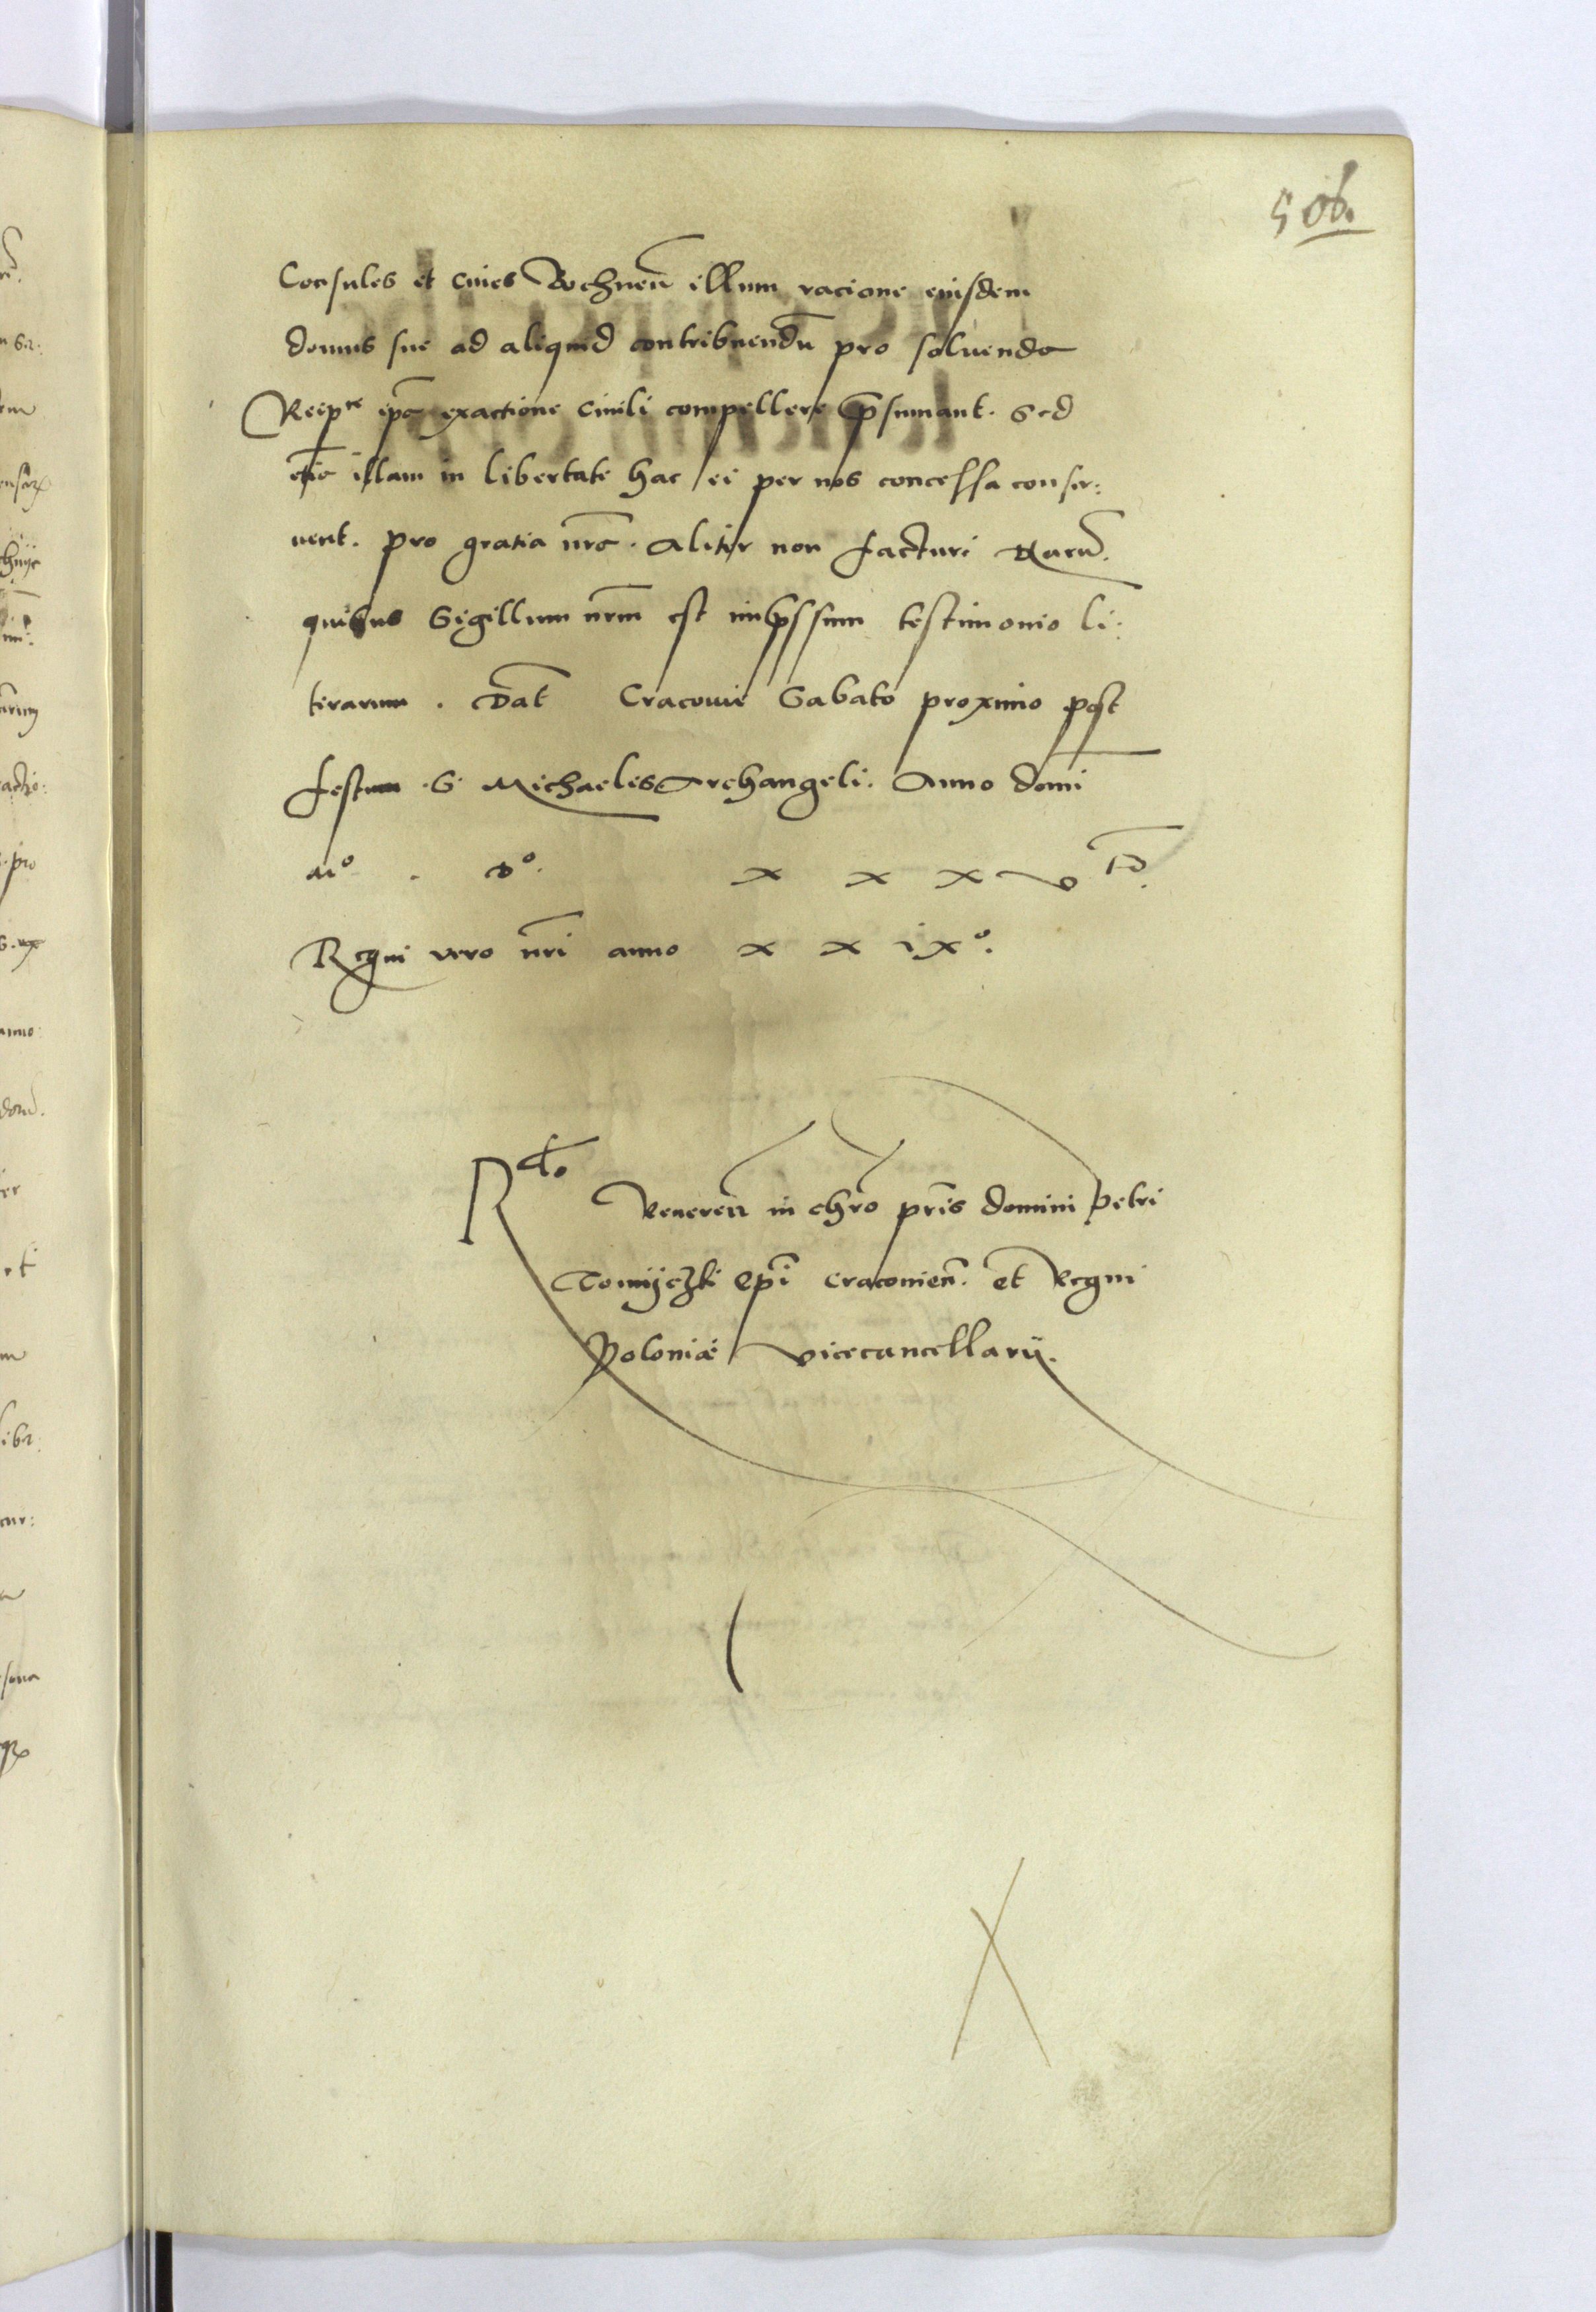 506.
Consules et ciues Bochnen̄ illum racione eiusdem
domus sue ad aliquid contribuendū pro soluenda
Reip̄ce ip̄a exactione ciuili compellere p̄sumant. Sed
illam in libertate hac ei per nos concessa conser:
uent. pro gratia nr̄a. Aliter non facturi Harū.
quibus Sigillum nr̄m est imp̄ssum testimonio li:
terarum. Dat̄ Cracouie Sabato proximo post
festum .S. Michaelis Archangeli. Anno domī
Mᵒ. Dᵒ. x x x v
Regni vero nr̄i anno x x ixᵒ.
Rᵗⁱᵒ
Reueren̄ in chr̄o pr̄is domini Petri
Tomijczki Ep̄i Cracouien̄. et Regni
Poloniæ vicecancellarij.